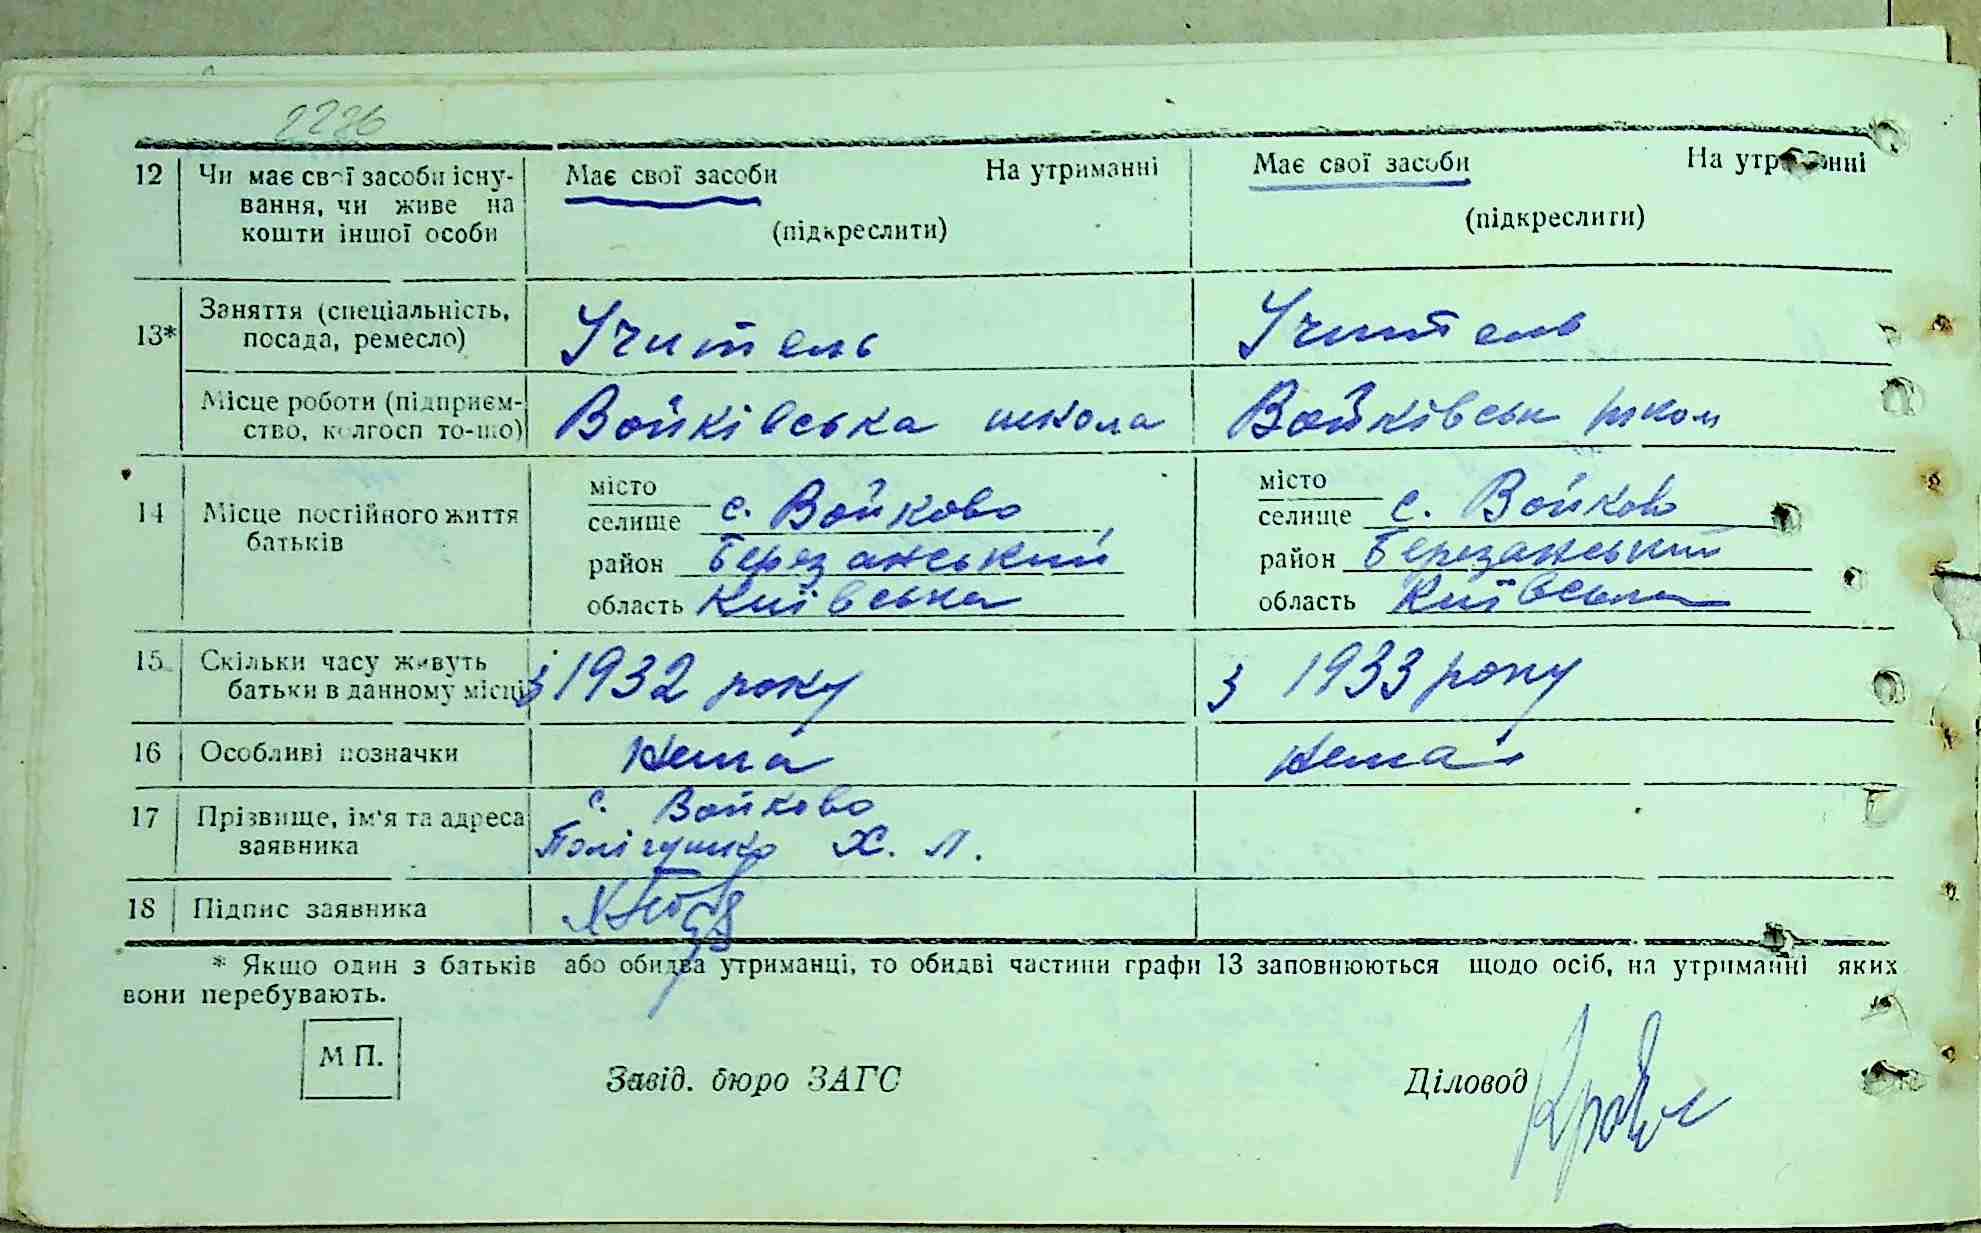 2236
12 Чи має свої засоби існу- Має свої засоби На утриманні Має свої засоби На утриманні
вання, чи живе на
кошти іншої особи (підкреслити) (підкреслити)
13* Заняття (спеціальність, Учитель Учитель
посада, ремесло)
Місце роботи (підприєм- Войківська школа Войківськ школ
ство, колгосп то-що)
14 Місце постійного життя місто місто
батьків селище с. Войково селище с. Войково
район Березанський район Березанський
область Київська область Київська
15 Скільки часу живуть з 1932 року з 1933 року
батьки в данному місці
16 Особливі позначки Нема Нема
17 Прізвище, ім'я та адреса с. Войково
заявника Х. Л.
18 Підпис заявника
* Якщо один з батьків або обидва утриманці, то обидві частини графи 13 заповнюються щодо осіб, на утриманні яких
вони перебувають.
М П. Завід. бюро ЗАГС Діловод